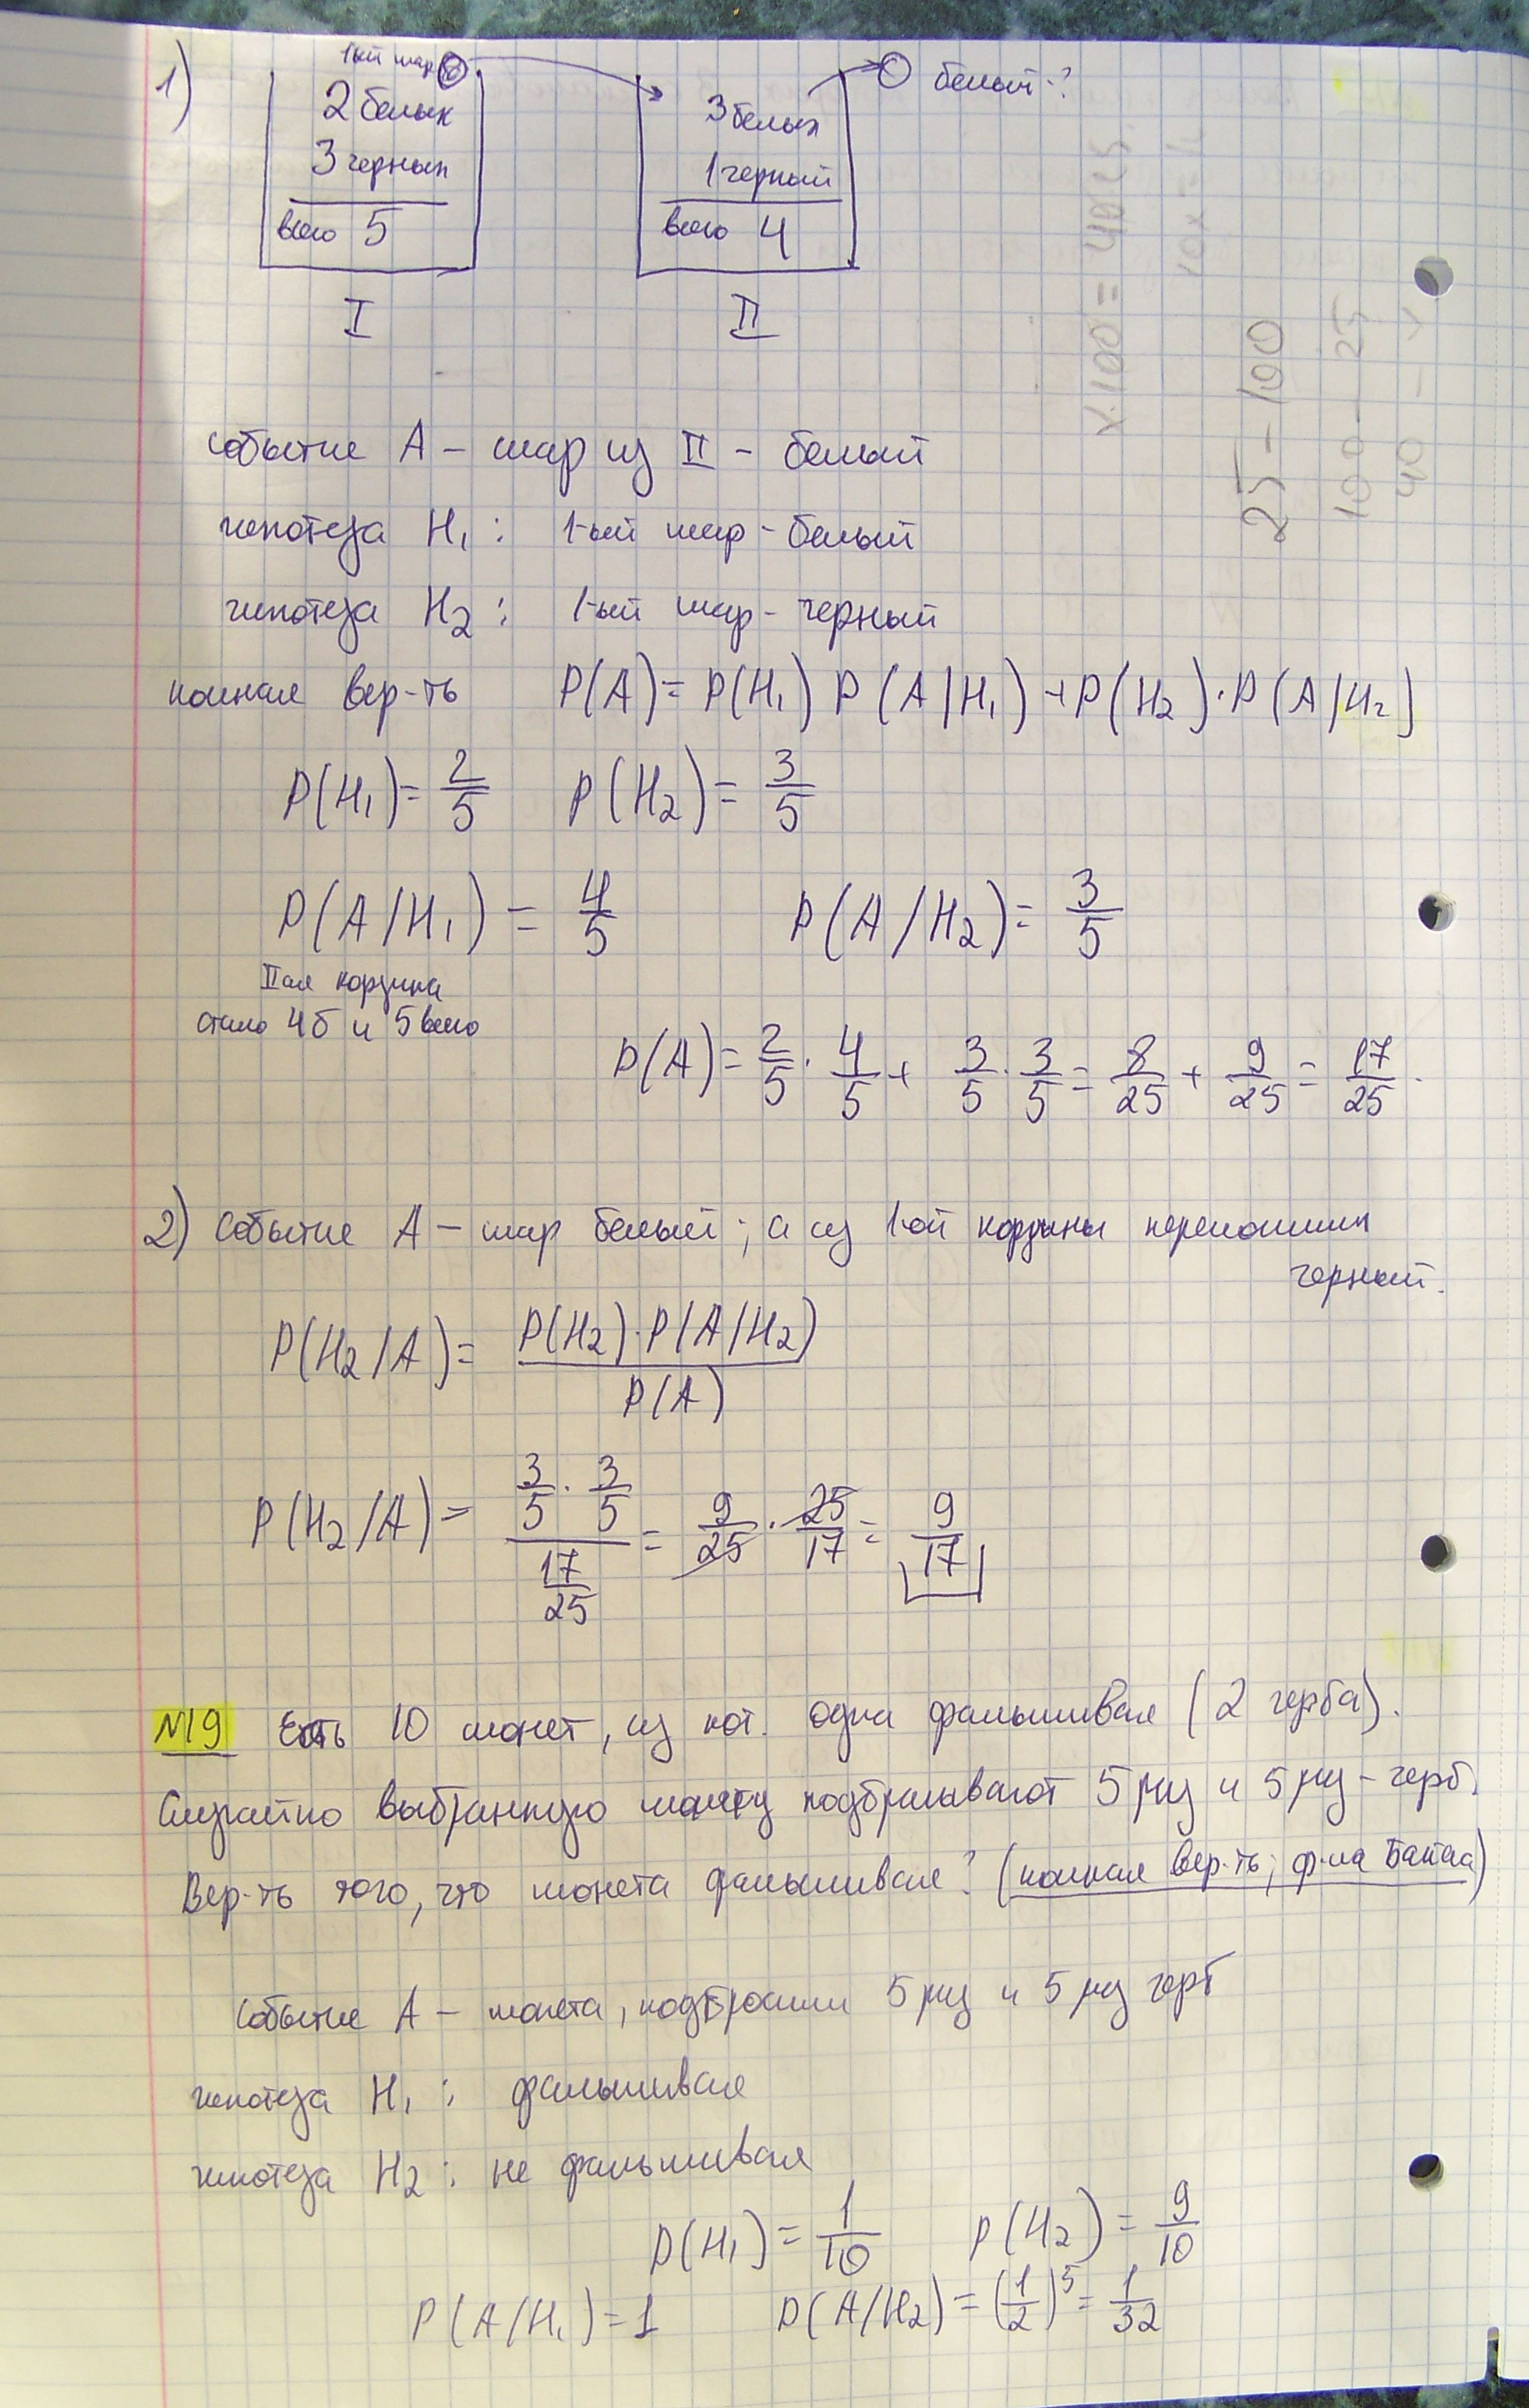 1)
1ый шар
2 белых
3 черных
всего 5
I
3 белых
1 черный
всего 4
II
белый-?
x·100=40
25-100
100-25
40-
событие A - шар из II - белый
гипотеза H₁: 1-ый шар - белый
гипотеза H₂: 1-ый шар - черный
полная вер-ть P(A)=P(H₁) P(A/H₁)+P(H₂)·P(A/H₂)
P(H₁)=2/5 P(H₂)=3/5
P(A/H₁)=4/5 P(A/H₂)=3/5
IIая корзина
стало 4б и 5 всего
P(A)=2/5·4/5+3/5·3/5=8/25+9/25=17/25.
2) событие A - шар белый; а из 1-ой корзины переложили
черный.
P(H₂/A)=P(H₂)·P(A/H₂)/P(A)
P(H₂/A)=(3/5·3/5)/(17/25)=9/25·25/17=9/17
N19 Есть 10 монет, из кот. одна фальшивая (2 герба).
Случайно выбранную монету подбрасывают 5 раз и 5 раз - герб.
Вер-ть того, что монета фальшивая? (полная вер-ть; ф-ла Байеса)
событие A - монета, подбросили 5 раз и 5 раз герб
гипотеза H₁: фальшивая
гипотеза H₂: не фальшивая
P(H₁)=1/10 P(H₂)=9/10
P(A/H₁)=1 P(A/H₂)=(1/2)⁵=1/32